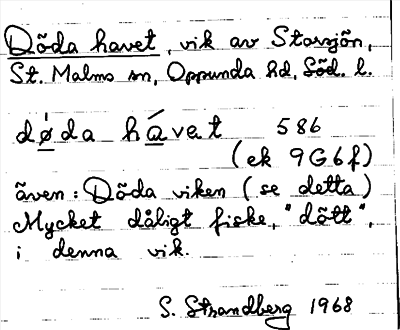 Döda havet, vik av Storsjön,
St. Malms sn, Oppunda hd, Söd. l.
dø̀da hávet 586
(ek 9G6f)
även: Döda viken (se detta)
Mycket dåligt fiske, "dött",
i denna vik.
S. Strandberg 1968